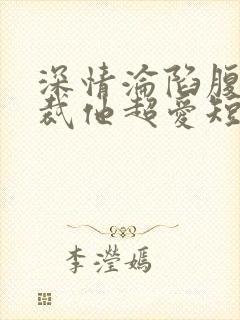 深情淪陷腹
裁他超愛短
李瀅嫣